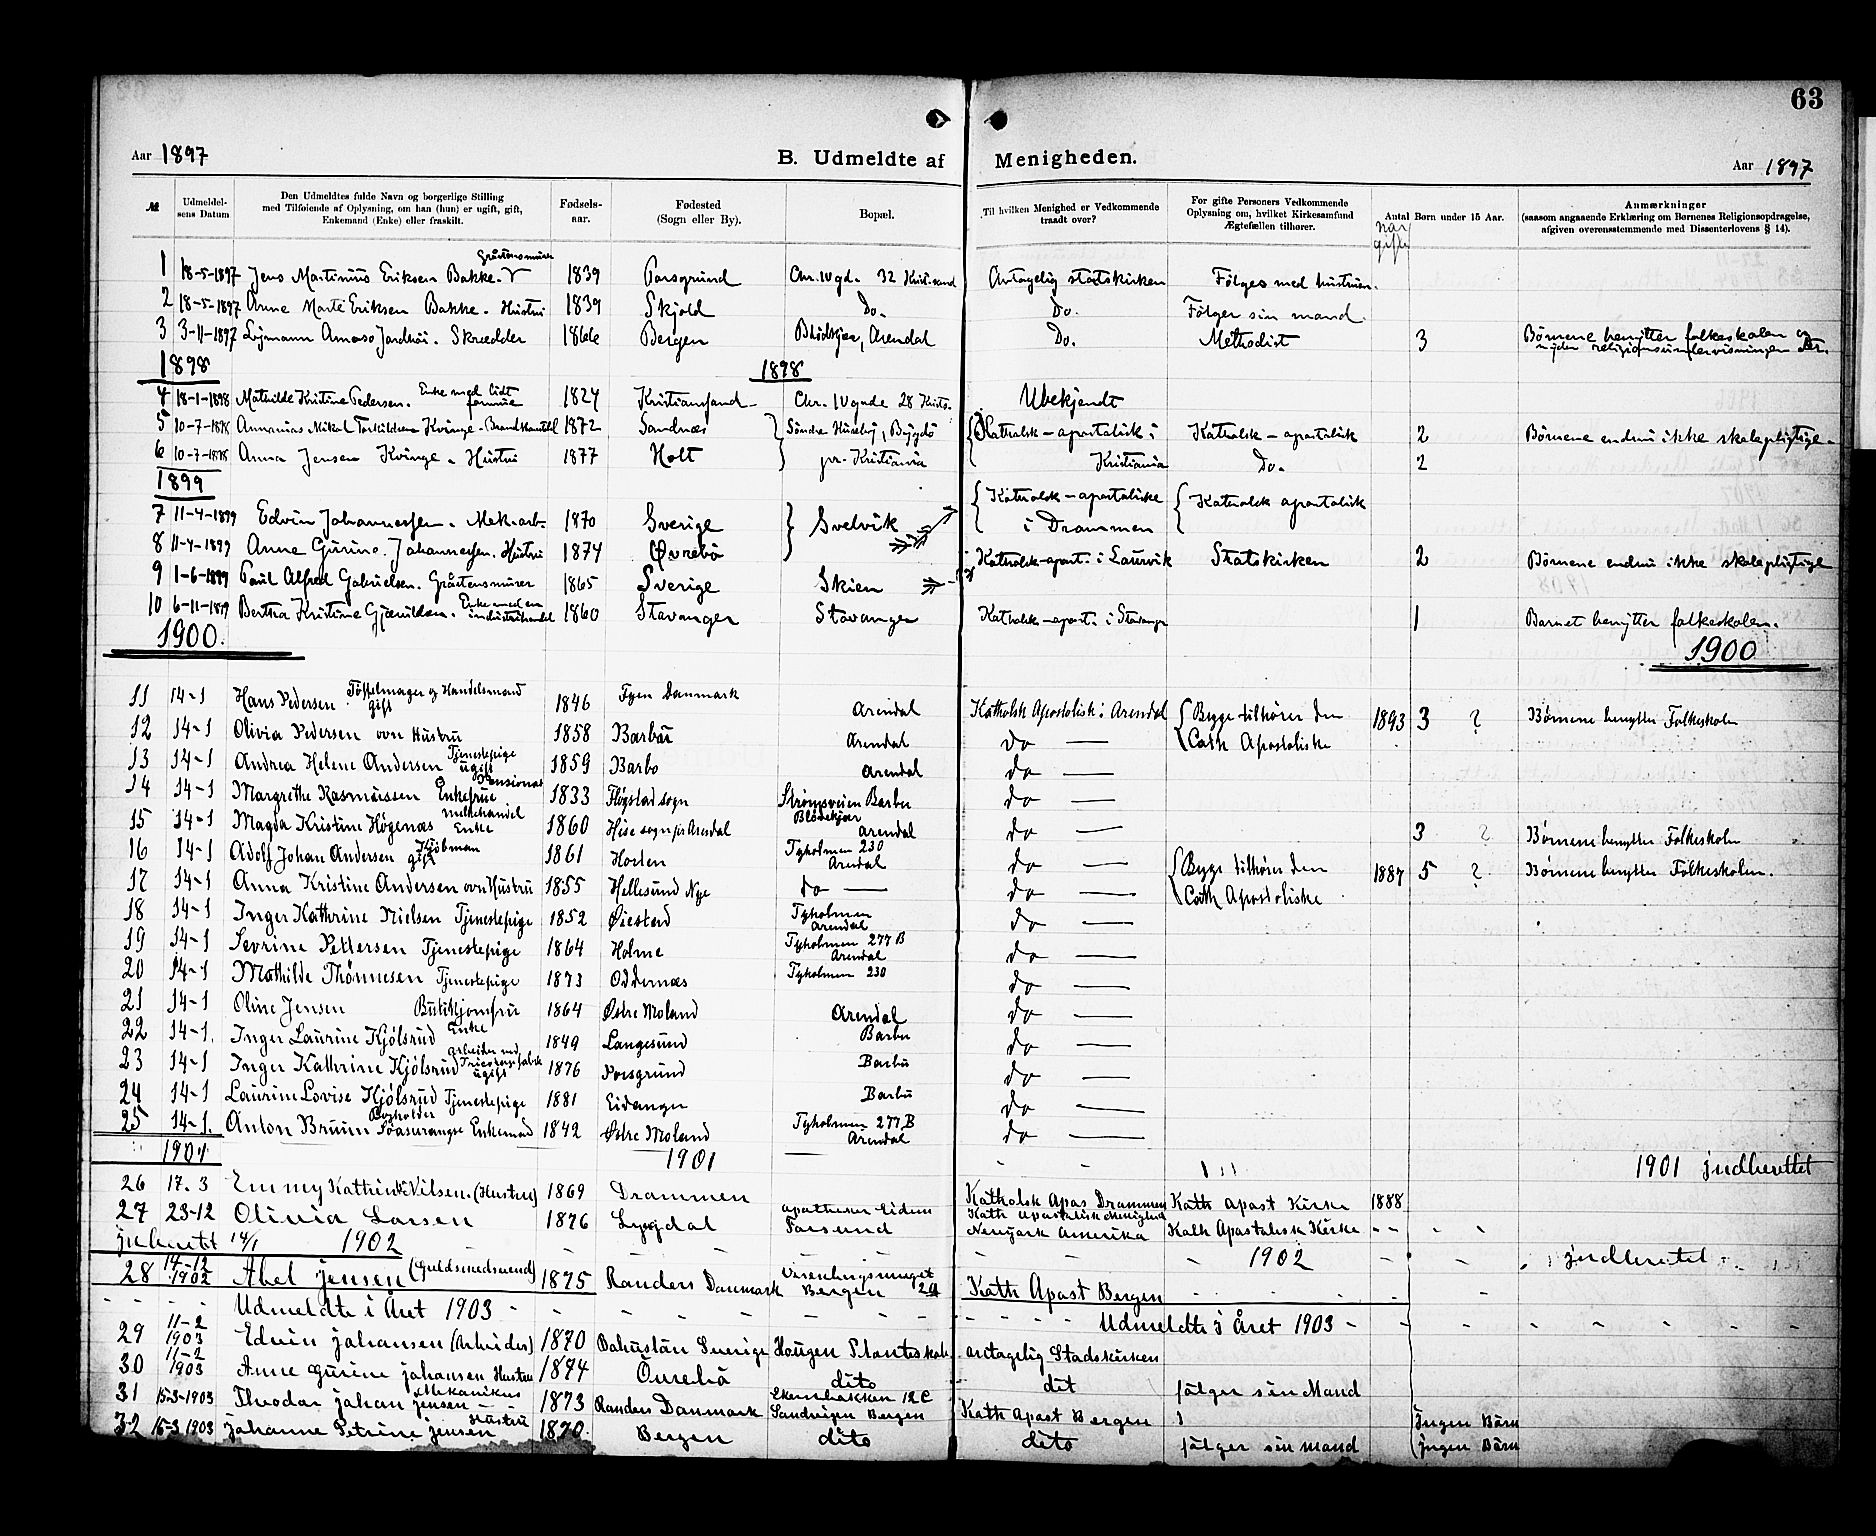 63
Aar 1897 B. Udmeldte af Menigheden. Aar 1897
№ Udmeldelsens Datum Den Udmeldtes fulde Navn og borgerlige Stilling med Tilføiende af Oplysning, om han (hun) er ugift, gift, Enkemand (Enke) eller fraskilt. Fødselsaar. Fødested (Sogn eller By). Bopæl. Til hvilken Menighed er Vedkommende traadt over? For gifte Personers Vedkommende Oplysning om, hvilket Kirkesamfund Ægtefællen tilhører. Naar gifte Antal Børn under 15 Aar. Anmærkninger (saasom angaaende Erklæring om Børnenes Religionsopdragelse, afgiven overensstemmende med Dissenterlovens § 14).
1 18-5-1897 Jens Martinius Eriksen Bakke. 1839 Porsgrund Chr. IV gd. 32 Antagelig statskirken Følges med hustruen.
2 18-5-1897 Anne Marte Eriksen Bakke. Hustru 1839 Skjold Do. Do. Følger sin mand.
3 3-11-1897 Skrædder 1866 Bergen Arendal Do. Methodist 3 Børnene benytter folkeskolen og nyder religionsundervisningen der.
1898 1898
4 18-1-1898 Mathilde Kristine Pedersen. Enke med lidt formue 1824 Kristianssand Chr. IV gade 28 Ubekjendt
5 10-7-1898 Kvinge - 1872 Sandnæs Søndre Huseby, Bygdø Katholsk-apostolisk i Katholsk-apostolisk 2 Børnene endnu ikke skolepligtige.
6 10-7-1898 Anna Jensen Kvinge. Hustru 1877 Holt pr. Kristiania Kristiania Do. 2
1899
7 11-4-1899 Edvin Johannessen. Mek.arb. 1870 Sverige Svelvik Katholsk-apostoliske i Drammen Katholsk apostolisk
8 11-4-1899 Anne Gurine Johannessen. Hustru 1874 Øvrebø
9 1-6-1899 Paul Alfred Gabrielsen. 1865 Sverige Skien Katholsk-apost. i Laurvik Statskirken 2 Børnene endnu ikke skolepligtige
10 6-11-1899 Bertha Kristine Enke med en industrihandel 1860 Stavanger Stavanger Katholsk-apost. i Stavanger 1 Barnet benytter folkeskolen.
1900. 1900
11 14-1 Hans Pedersen Tøffelmager og Handelsmand gift 1846 Fyen Danmark Arendal Katholsk Apostolisk i Arendal Begge tilhører den Cath Apostoliske 1893 3 ? Børnene benytter Folkeskolen
12 14-1 Olivia Pedersen ovn Hustru 1858 Barbu Arendal do —
13 14-1 Andrea Helene Andersen Tjenestepige ugift 1859 Barbo Arendal do —
14 14-1 Margrethe Rasmussen Enkefrue Pensionat 1833 Høgstad sogn Strømsveien Barbu do —
15 14-1 Magda Kristine Høgenæs melkehandel Enke 1860 Hise sogn pr Arendal Blødekjær Arendal do — 3 ? Børnene benytter Folkeskolen
16 14-1 Adolf Johan Andersen Kjøbman gift 1861 Horten Tyholmen 230 Arendal do — Begge tilhører den Cath Apostoliske 1887 5 ? Børnene benytter Folkeskolen.
17 14-1 Anna Kristine Andersen ovn Hustru 1855 Hellesund Nye do — do —
18 14-1 Inger Kathrine Nielsen Tjenestepige 1852 Øiestad Tyholmen Arendal do —
19 14-1 Sevrine Pettersen Tjenestepige 1864 Holme Tyholmen 277 B Arendal do —
20 14-1 Mathilde Thönnesen Tjenestepige 1873 Oddernæs Tyholmen 230 do —
21 14-1 Oline Jensen Butikjomfru 1864 Østre Moland Arendal do —
22 14-1. Inger Laurine Kjölsrud Enke 1849 Langesund Barbu do —
23 14-1 Inger Kathrine Kjölsrud arbeider ved ugift 1876 Porsgrund Barbu do —
24 14-1 Laurine Lovise Kjölsrud Tjenestepige 1881 Eidanger Barbu do —
25 14-1. Anton Bruun Enkemand 1842 Østre Moland Tyholmen 277 B Arendal do —
1901 1901 1901 jndberettet
26 17.3 Emmy Kathrine Nilsen. (Hustru) 1869 Drammen Katholsk Apos Drammen Kath Apost Kirke 1888
27 23-12 Olivia Larsen 1876 Lyngdal Farsund Kath Apostolisk Menighed Newyork Amerika Kath Apostolisk Kirke
14/1 1902 1902 jndberetet
28 14-12 1902 Abel Jensen (Guldsmedsvend) 1875 Randers Danmark Bergen Kath Apost Bergen
Udmeldte i Året 1903 Udmeldte i Året 1903
29 11-2 1903 Edvin Johansen (Arbeider) 1870 Bohuslän Sverige Haugen Planteskole antagelig Stadskirken
30 11-2 1903 Anne Gurine Johansen Hustru 1874 Övrebö dito dit følger sin Mand
31 15-3-1903 Theodor Johan Jensen Mekanikus 1873 Randers Danmark Ekerenbakken 12 C Sandvigen Bergen Kath Apost Bergen Jngen Børn
32 15-3 1903 Johanne Petrine Jensen Hustru 1870. Bergen dito dito følger sin mand jngen Børn